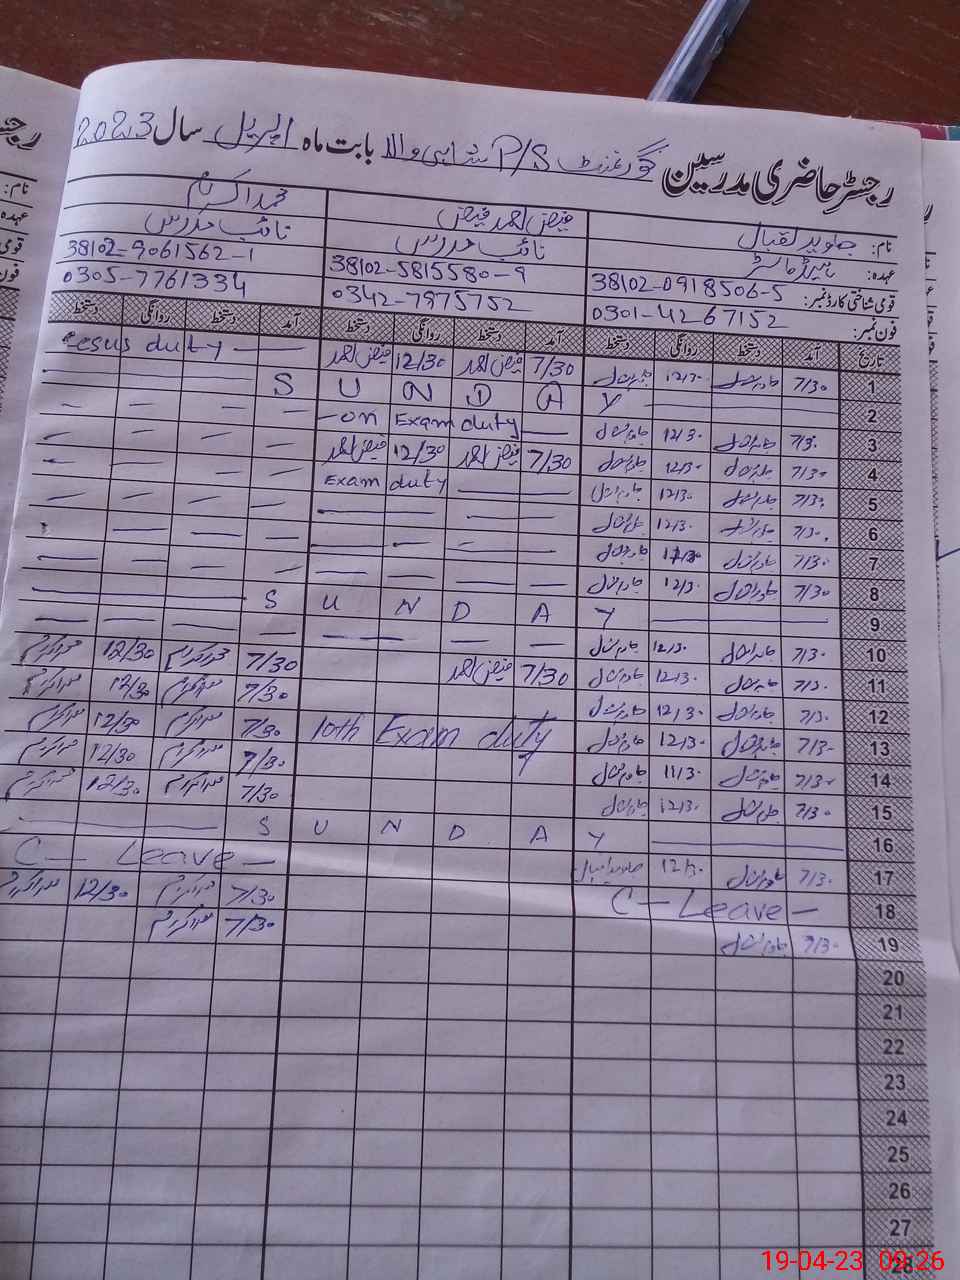 رجسٹر حاضری مدرسین گورنمنٹ P/S شاہی والا بابت ماہ اپریل سال 2023
نام: جاوید اقبال فیض احمد فیض محمد اکرم
عہدہ: ہیڈ ماسٹر نائب مدرس نائب مدرس
قومی شناختی کارڈ نمبر: 38102-0918506-5 38102-5815580-9 38102-9061562-1
فون نمبر: 0301-4267152 0342-7975752 0305-7761334
تاریخ آمد دستخط روانگی دستخط آمد دستخط روانگی دستخط آمد دستخط روانگی دستخط
1 7/30 12/30 7/30 فیض احمد 12/30 فیض احمد cesus duty
2 S U N D A Y
3 7/30 12/30 - on Exam duty
4 7/30 12/30 7/30 فیض احمد 12/30 فیض احمد
5 7/30 12/30 Exam duty
6 7/30 12/30
7 7/30 12/30
8 7/30 12/30
9 S U N D A Y
10 7/30 12/30
11 7/30 12/30 7/30 فیض احمد 7/30 محمد اکرم 12/30 محمد اکرم
12 7/30 12/30 7/30 محمد اکرم 12/30 محمد اکرم
13 7/30 12/30 10th Exam duty 7/30 محمد اکرم 12/30 محمد اکرم
14 7/30 11/30 7/30 محمد اکرم 12/30 محمد اکرم
15 7/30 12/30 7/30 محمد اکرم 12/30 محمد اکرم
16 S U N D A Y
17 7/30 12/30 جاوید اقبال C - Leave -
18 C - Leave - 7/30 محمد اکرم 12/30 محمد اکرم
19 7/30 7/30 محمد اکرم
20
21
22
23
24
25
26
27
28
19-04-23 09:26